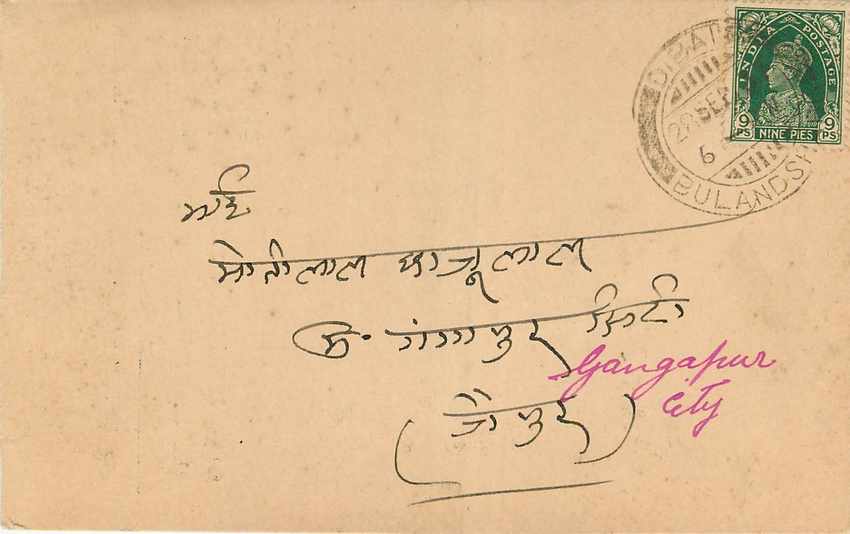 INDIA POSTAGE
9 PS NINE PIES 9 PS
SEP
6
BULANDSH
मोतीलाल लाल
गंगापुर सिटी
Gangapur
City
(जैपुर)